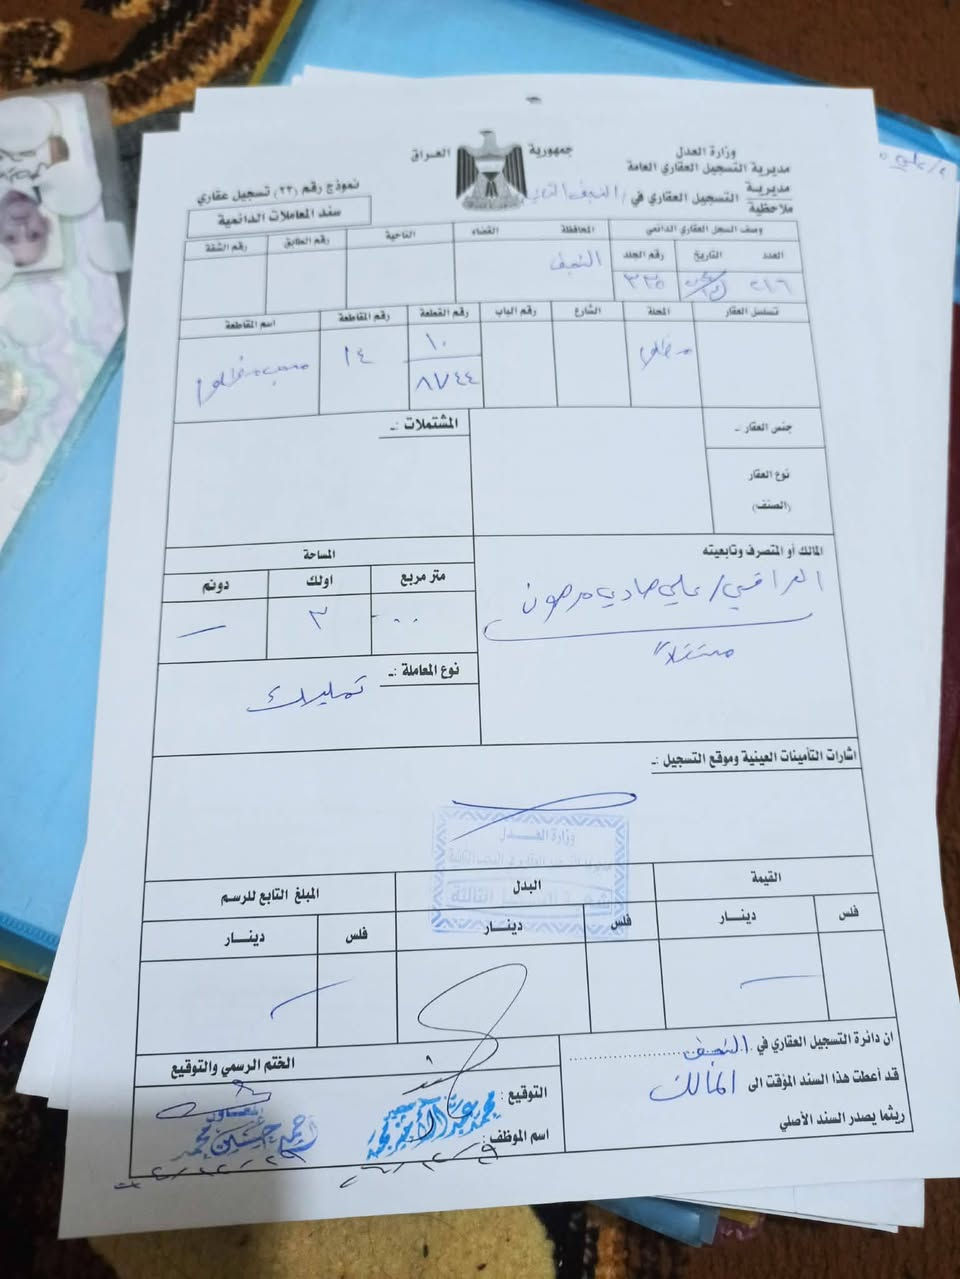 جمهورية العراق
وزارة العدل
مديرية التسجيل العقاري العامة
مديرية
ملاحظية
التسجيل العقاري في / النجف
نموذج رقم (٢٣) تسجيل عقاري
سند المعاملات الدائمية
وصف السجل العقاري الدائمي المحافظة القضاء الناحية رقم الطابق رقم الشقة
العدد التاريخ رقم الجلد
٢١٦ ٣٣٥ النجف
تسلسل العقار المحلة الشارع رقم الباب رقم القطعة رقم المقاطعة اسم المقاطعة
١٠
٨٧٤٤
١٤
جنس العقار :-
المشتملات :-
نوع العقار
(الصنف)
المالك أو المتصرف وتابعيته
العراقي / علي هادي مرهون
مستقلاً
المساحة
متر مربع اولك دونم
٠٠ ٣ —
نوع المعاملة :-
تمليك
اشارات التأمينات العينية وموقع التسجيل :-
وزارة العدل
القيمة البدل المبلغ التابع للرسم
فلس دينــار فلس دينــار فلس دينــار
ان دائرة التسجيل العقاري في النجف
قد أعطت هذا السند المؤقت الى المالك
ريثما يصدر السند الأصلي
الختم الرسمي والتوقيع
التوقيع :
اسم الموظف :
المعاون
احمد حسين محمد